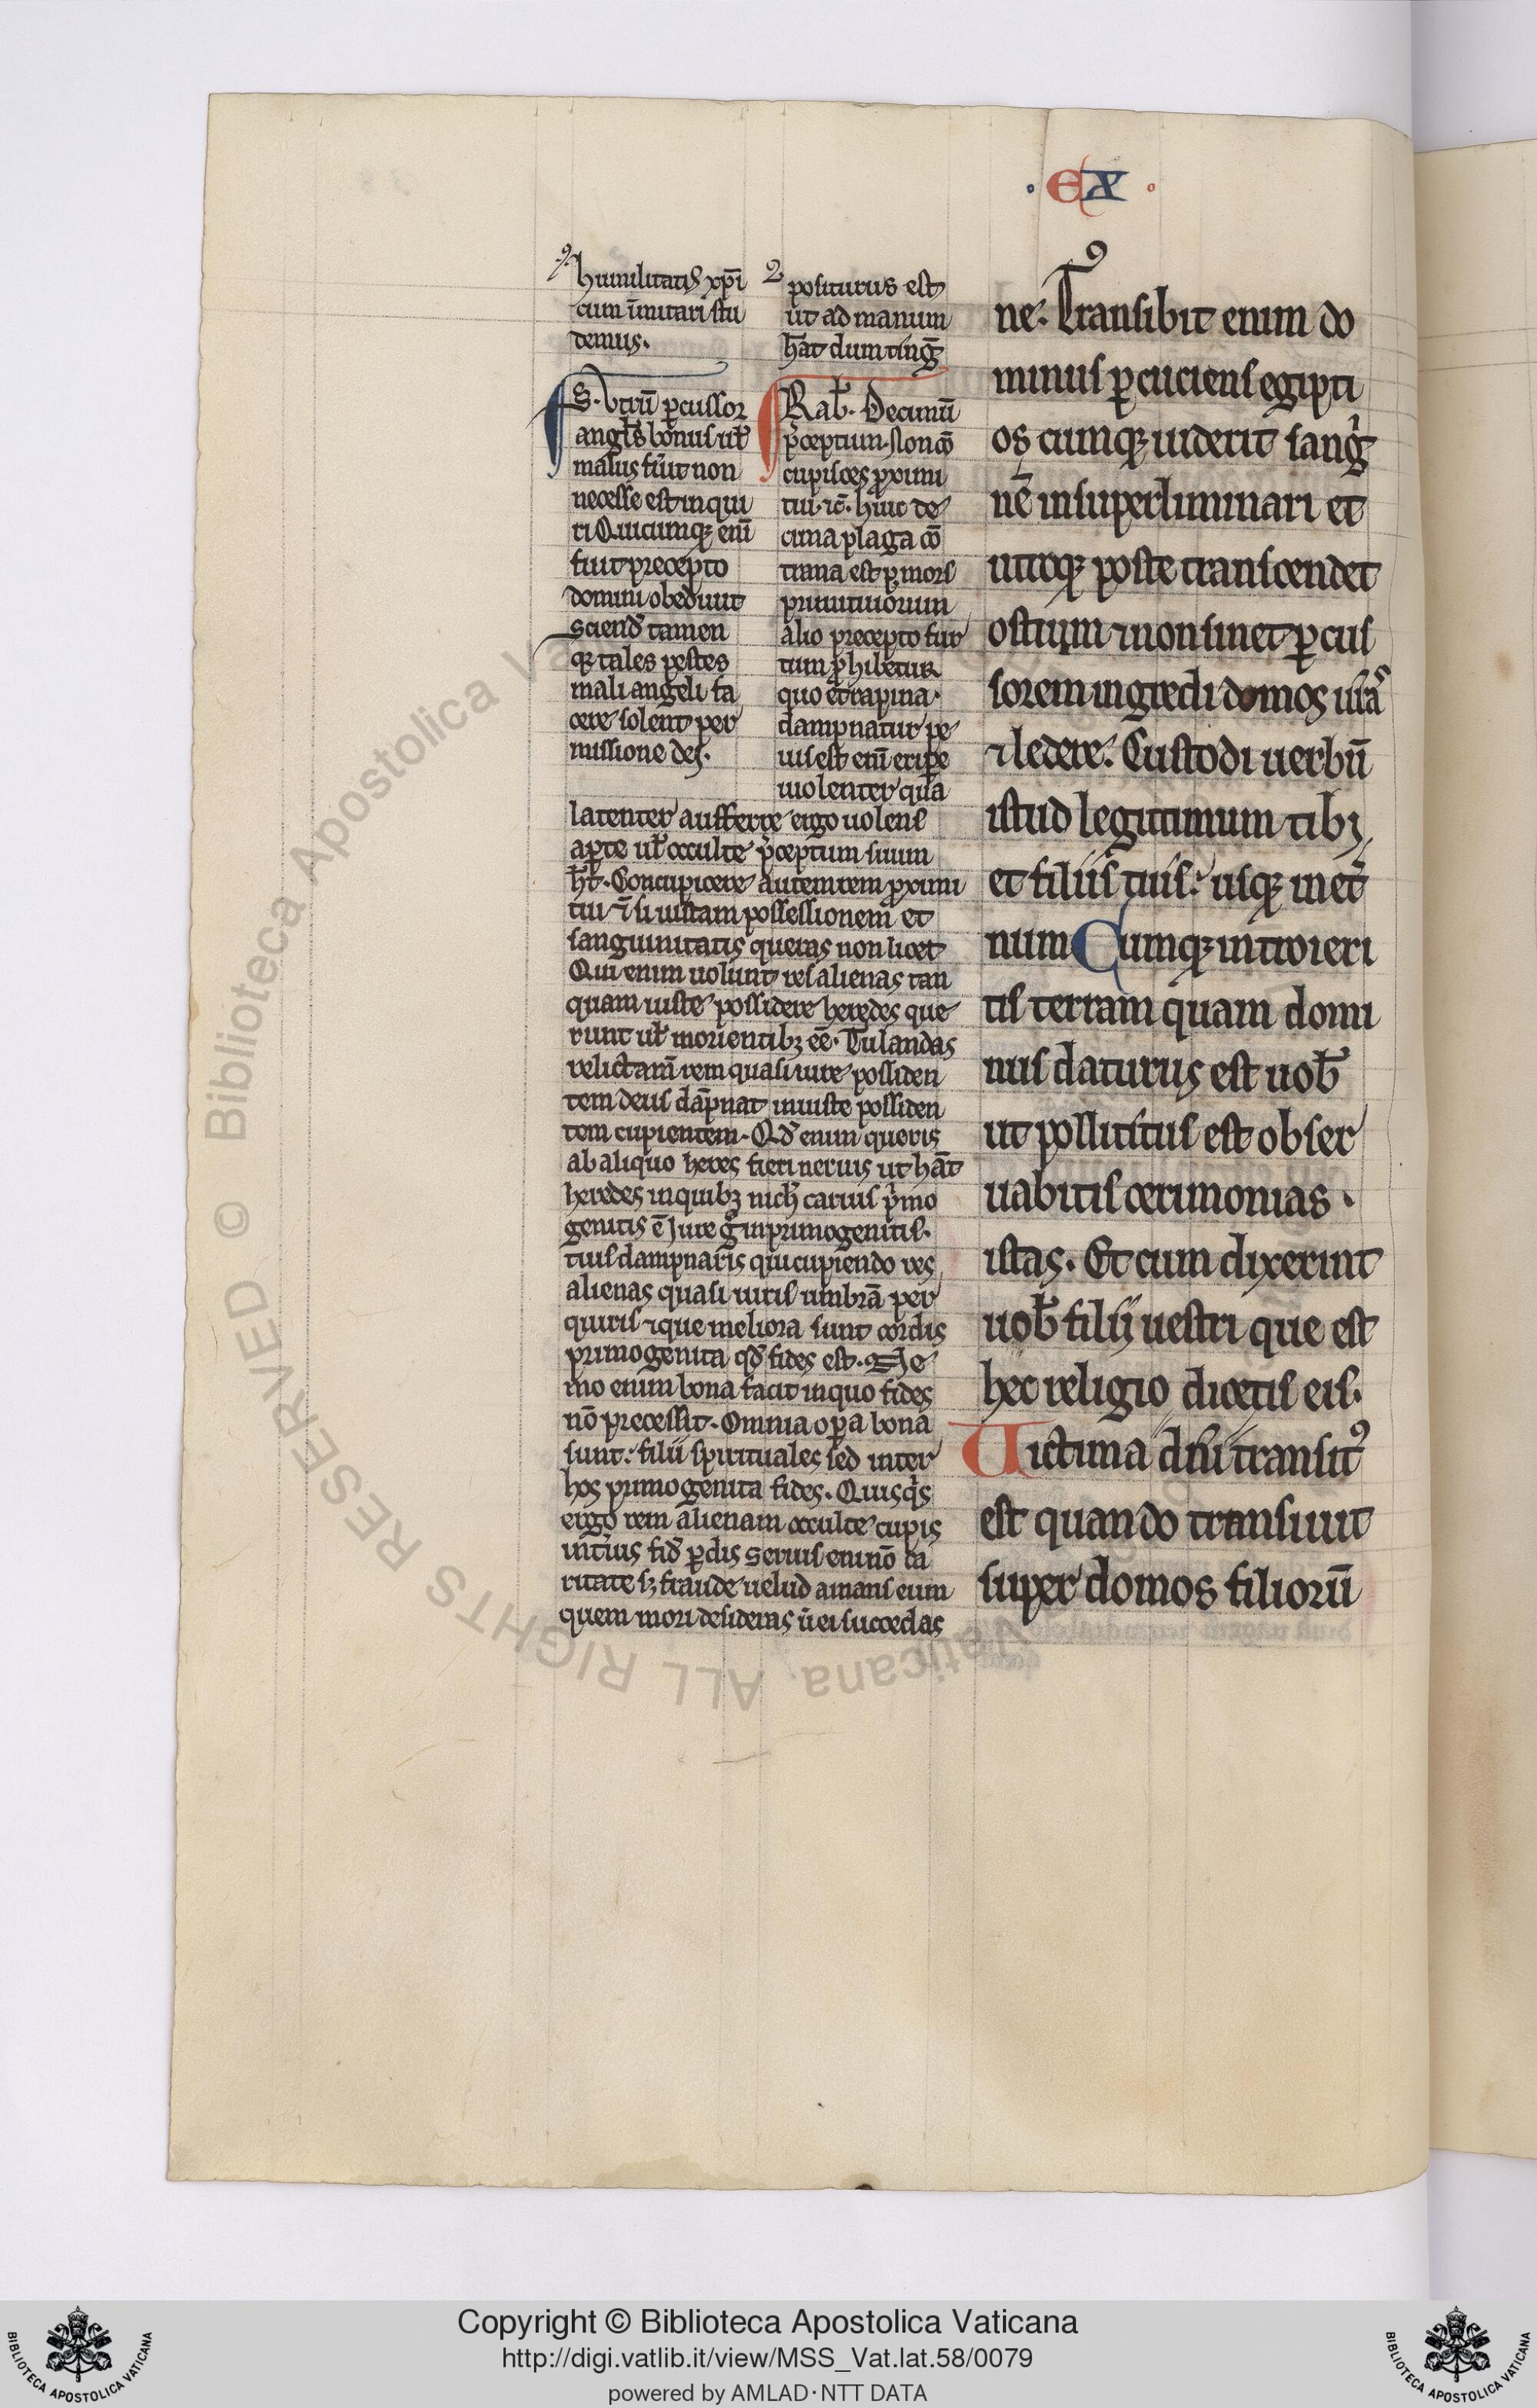 EX
humilitatis xp̄i
cum īmitari stu
demus.
S. Vtrū ꝑcussor
angĺs bonus ul̄
malus fu̅it non
necesse est inqui
ri Quicumqꝫ enī
fuit precepto
domini obediuit
Sciend̄ tamen
qꝫ tales pestes
mali angeli fa
cere solent per
missione dei.
positurus est
ut ad manum
hāt dum ting̅
Rab̄. Decimū
p̄ceptum. Non cō
cupisces ꝓximi
tui. ⁊c̄. huic de
cima plaga cō
traria est ꝗ mors
primitiuorum
alio precepto fur
tum ꝓhibetur
quo et̄ rapina
dampnatur pe
ius est enī eriꝑe
uiolenter quā
latenter aufferre ergo uolens
aꝑte ul̄ occulte p̄ceptum suum
h̄t. Concupiscere autem rem ꝓximi
tui ⁊̄ si iustam possessionem et
sanguinitatis queras non licet
Qui enim uolunt res alienas tan
quam iuste possidere heredes que
runt ul̄ morientibꝫ ēē. Tulandas
relictam̄ rem quasi iure possiden
tem deus dāpnat iniuste possiden
tem cupientem. Qd̄ enim queris
ab aliquo heres fieri nerius ut hāt
heredes in quibꝫ nich̄ carius p̄mo
genitis ē Jure g̊ in primogenitis.
tuis dampnaris qui cupiendo res
alienas quasi iuris umbrā per
quiris ⁊ que meliora sunt cordis
primogenita qd̄ fides est. Ne
mo enim bona facit in quo fides
nō precessit. Omnia oꝑa bona
sunt filii spirituales sed inter
hos primogenita fides. Quisqͥs
ergo rem alienam occulte cupis
int̄ius fid̄ ꝑdis seruis enī nō ca
ritate sꝫ fraude uelud amans eum
quem mori desideras ū ei succedas
ne. Transibit enim do
minus ꝑcuciens egipti
os cumqꝫ uiderit sangͥ
nē in superliminari et
utroqꝫ poste transcendet
ostium ⁊ non sinet ꝑcus
sorem ingredi domos ur̄aˢ
⁊ ledere. Custodi uerbū
istud legitimum tibi
et filiis tuis usqꝫ in et̄
num Cumqꝫ introieri
tis terram quam domi
nus daturus est uob̄
ut pollicitus est obser
uabitis cerimonias
istas. Et cum dixerint
uob̄ filii uestri que est
hec religio dicetis eis.
Uictima dn̄i transitꝰ
est quando transiuit
super domos filiorū
Copyright © Biblioteca Apostolica Vaticana
http://digi.vatlib.it/view/MSS_Vat.lat.58/0079
powered by AMLAD·NTT DATA